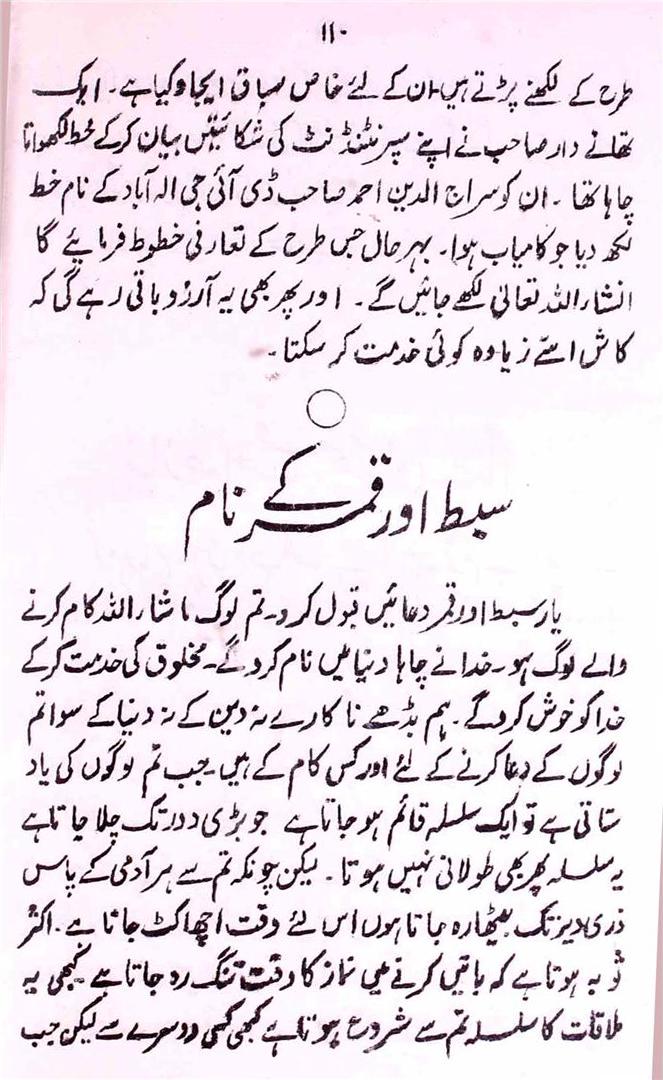 ۱۱۰
طرح کے لکھنے پڑتے ہیں ان کے لئے خاص سباق ایجاد کیا ہے۔ ایک
تھانے دار صاحب نے اپنے سپرنٹنڈنٹ کی شکائتیں بیان کر کے خط لکھوانا
چاہا تھا۔ ان کو سراج الدین احمد صاحب ڈی آئی جی الہ آباد کے نام خط
لکھ دیا جو کامیاب ہوا۔ بہر حال جس طرح کے تعارفی خطوط فرمایئے گا
انشاء اللہ تعالیٰ لکھے جائیں گے۔ اور پھر بھی یہ آرزو باقی رہے گی کہ
کاش اسے زیادہ کوئی خدمت کر سکتا۔
سبط اور قمر کے نام
یار سبط اور قمر دعائیں قبول کرو۔ تم لوگ ماشاء اللہ کام کرنے
والے لوگ ہو۔ خدا نے چاہا دنیا میں نام کرو گے۔ مخلوق کی خدمت کر کے
خدا کو خوش کرو گے۔ ہم بڈھے ناکارے نہ دین کے نہ دنیا کے سوا تم
لوگوں کے دعا کرنے کے لئے اور کس کام کے ہیں۔ جب تم لوگوں کی یاد
ستاتی ہے تو ایک سلسلہ قائم ہو جاتا ہے جو بڑی دور تک چلا جاتا ہے
یہ سلسلہ پھر بھی طولانی نہیں ہوتا۔ لیکن چونکہ تم سے ہر آدمی کے پاس
ذری دیر تک بیٹھا رہ جاتا ہوں اس لئے وقت اچھا کٹ جاتا ہے۔ اکثر
تو یہ ہوتا ہے کہ باتیں کرنے میں نماز کا وقت تنگ رہ جاتا ہے۔ کبھی یہ
ملاقات کا سلسلہ تم سے شروع ہوتا ہے کبھی کسی دوسرے سے لیکن جب